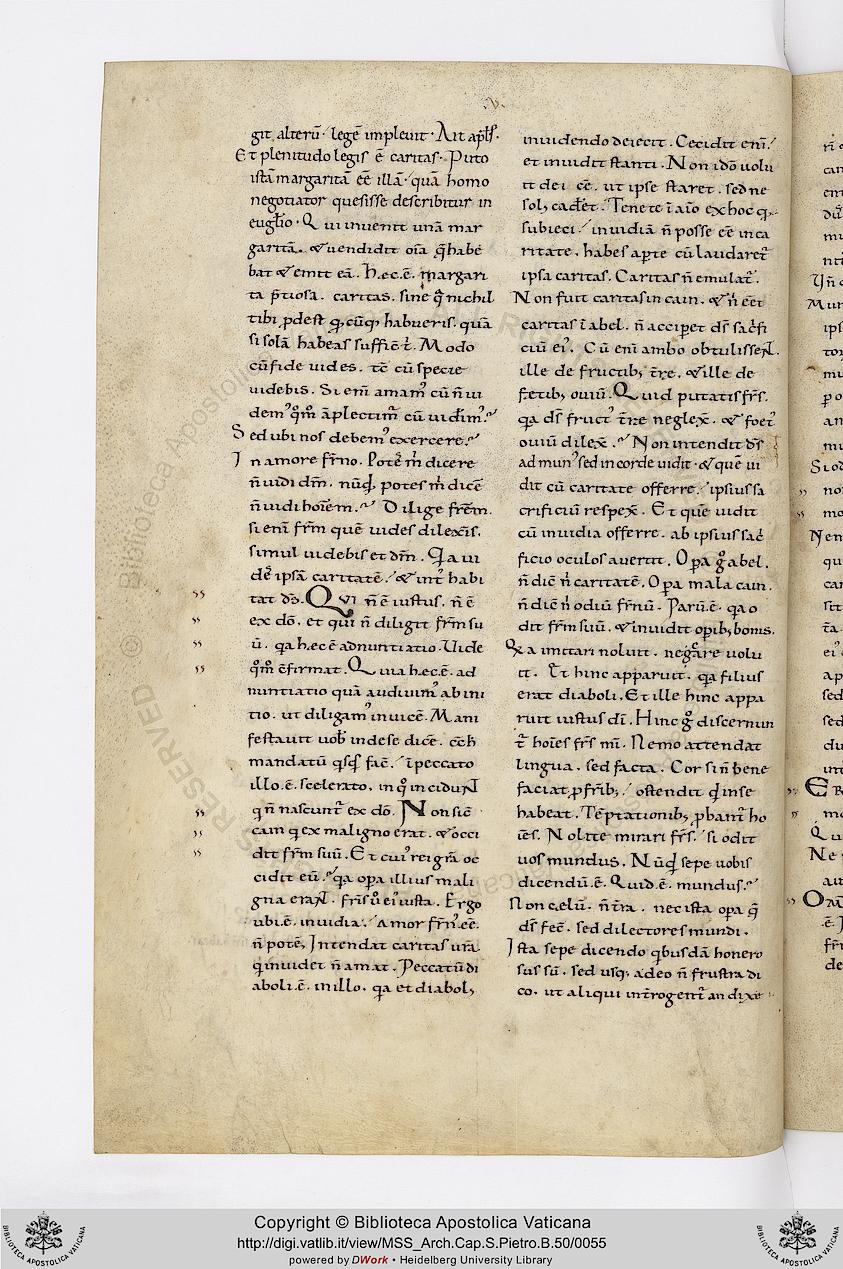 .V.
git alterū. legē impleuit. Ait apl̄s.
Et plenitudo legis ē caritas. Puto
istā margaritā eē illā. quā homo
negotiator quesisse describitur in
euḡlio. Qui inuenit unā mar
garitā. & uendidit oīa q̄ habe
bat & emit eā. H.ec.ē. margari
ta p̄tiosa. caritas. sine q̄ nichil
tibi ꝓdest qcūq habueris. quā
si solā habeas sufficit t̄. Modo
cū fide uides. tc̄ cū specie
uidebis. Si eni amam᾽ cū n̄ ui
dem᾽ qm̊ āplectim᾽ cū uidīm᾽.
Sed ubi nos debem᾽ exercere.
In amore fr̄no. Potē m̄ dicere
n̄ uidi dm̄. nūq̄ potes m̄ dicē
n̄ uidi hoīem. Dilige fr̄em.
si enī fr̄m quē uides dilexis.
simul uidebis et dm̄. Qa ui
debis ipsā caritatē. & int᾽ habi
tat ds̄. Qui n̄ ē iustus. n̄ ē
ex dō. et qui n̄ diligit fr̄m su
ū. qa h.ec ē adnuntiatio. Uide
qm̊ c̄firmat. Quia h.ec.ē. ad
nuntiatio quā audiuim᾽ ab ini
tio. ut diligam᾽ inuicē. Mani
festauit uob̄ inde se dicē.
mandatū qsqs facē. ī peccato
illo.ē. scelerato. in q̊ incidunt
q n̄ nascunt᾽ ex dō. Non sic̄
cain q ex maligno erat. & occi
dit fr̄m suū. Et cui᾽ rei gr̄a oc
cidit eū. qa opa illius mali
gna erant. fr̄s ū ei᾽ iusta. Ergo
ubi.ē. inuidia. amor fr̄n᾽.eē.
n̄ potē. Intendat caritas ur̄a.
q inuidet n̄ amat. Peccatū di
aboli.ē. in illo. qa et diabol;
inuidendo deiecit. Cecidit enī
et inuidit stanti. Non idō uolu
it dei cē. ut ipse staret. sed ne
sol; cad̄et. Tenete ī aīo ex hoc q
subieci. inuidiā n̄ posse eē in ca
ritate. habes apte cū laudaret᾽
ipsa caritas. Caritas n̄ emulat᾽.
Non fuit caritas in cain. & n̄ eēt
caritas ī abel. n̄ acciꝑet ds̄ sac̄fi
ciū ei᾽. Cū enī ambo obtulissent.
ille de fructib; tr̄e. & ille de
fetib; ouiū. Quid putatis fr̄s.
qa ds̄ fruct᾽ tr̄re neglex̄. & foet᾽
ouiū dilex̄. Non intendit ds̄
ad mun᾽ sed in corde uidit. & quē ui
dit cū caritate offerre. ipsius sa
crificiū respex̄. Et quē uidit
cū inuidia offerre. ab ipsius sac̄
ficio oculos auertit. Opa g̊ abel.
n̄ diē n̄ caritatē. Opa mala cain.
n̄ diē n̄ odiū fr̄nū. Parū.ē. qa o
dit fr̄m suū. & inuidit opib; bonis.
Qa imitari noluit. negare uolu
it. Et hinc apparuit. qa filius
erat diaboli. Et ille hinc appa
ruit iustus dī. Hinc g̊ discernun
t᾽ hoīes fr̄s mī. Nemo attendat
lingua. sed facta. Cor si n̄ bene
faciat ꝓ fr̄ib; ostendit q̄ in se
habeat. Tēptationib; ꝓbant᾽ ho
īes. Nolite mirari fr̄s. si odit
uos mundus. Nūq̄ sepe uobis
dicendū.ē. Quid.ē. mundus.
Non celū. n̄ tr̄a. nec ista opa q̄
ds̄ fec̄. sed dilectores mundi.
Ista sepe dicendo qbusdā honero
sus sū. sed usq; adeo n̄ frustra di
co. ut aliqui int̄rogent᾽ an dixe
Copyright © Biblioteca Apostolica Vaticana
http://digi.vatlib.it/view/MSS_Arch.Cap.S.Pietro.B.50/0055
powered by DWork • Heidelberg University Library